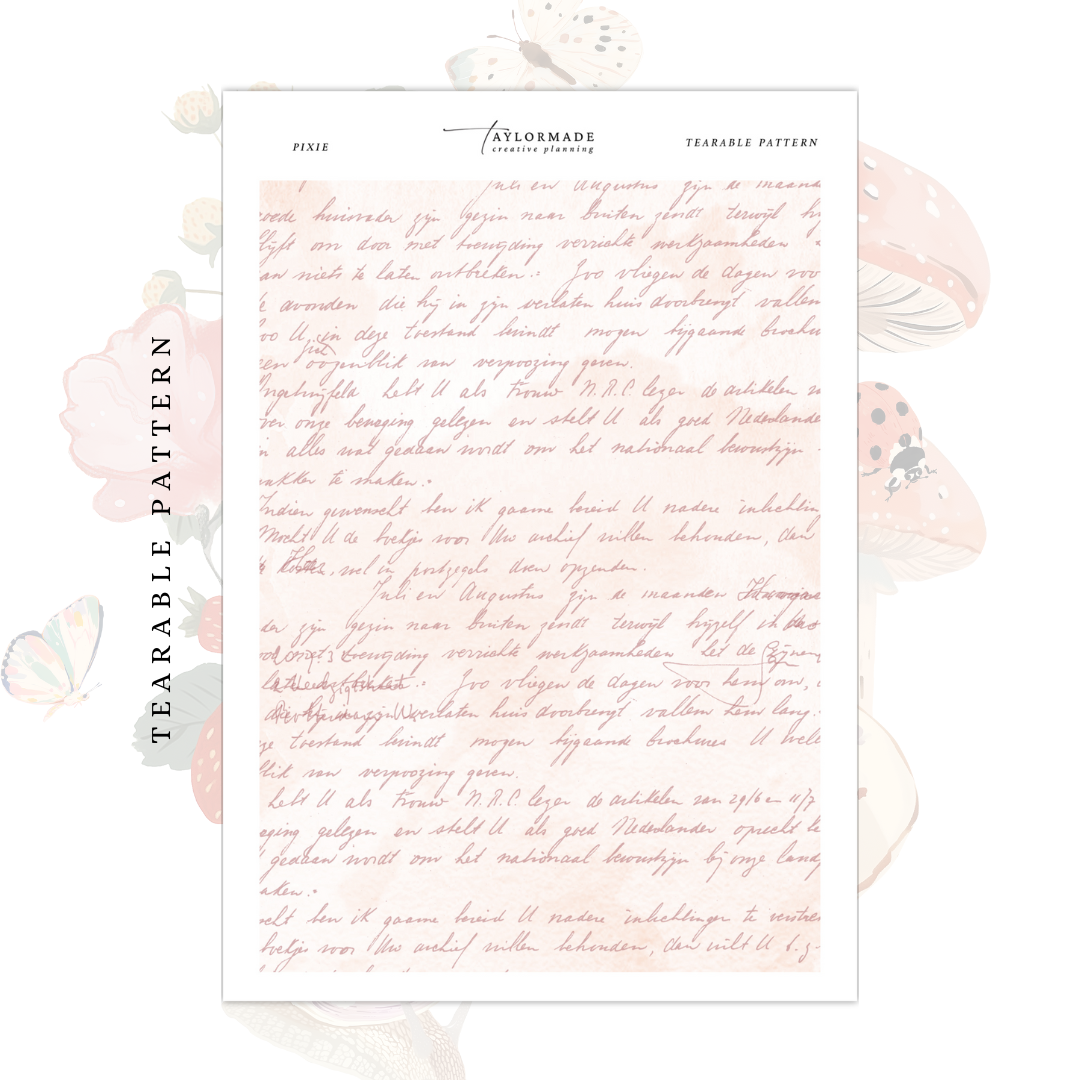 PIXIE
TAYLORMADE
creative planning
TEARABLE PATTERN
TEARABLE PATTERN
Juli en Augustus zijn de maand
goede huisvader zijn gezin naar buiten zendt terwijl hij
blijft om door met toewijding verrichte werkzaamheden
aan niets te laten ontbreken. Zoo vliegen de dagen voo
avonden die hij in zijn verlaten huis doorbrengt vallen
zoo U in deze toestand bevindt mogen bijgaande brochu
een oogenblik van verpoozing geven.
Ongetwijfeld hebt U als trouw N.R.C. lezer de artikelen
over onze beweging gelezen en stelt U als goed Nederlander
in alles wat gedaan wordt om het nationaal bewustzijn
wakker te maken.
Indien gewenscht ben ik gaarne bereid U nadere inlichting
Mocht U de boekjes voor Uw archief willen behouden, dan
wel in postzegels doen opzenden.
Juli en Augustus zijn de maanden
der zijn gezin naar buiten zendt terwijl hijzelf
toewijding verrichte werkzaamheden het de
Zoo vliegen de dagen voor hem om,
verlaten huis doorbrengt vallen hem lang.
ge toestand bevindt mogen bijgaande brochures U well
blik van verpoozing geven.
hebt U als trouw N.R.C. lezer de artikelen van 29/6 en 11/7
eging gelezen en stelt U als goed Nederlander oprecht be
gedaan wordt om het nationaal bewustzijn bij onze land
aken.
ben ik gaarne bereid U nadere inlichtingen te verstre
boekjes voor Uw archief willen behouden, dan wilt U